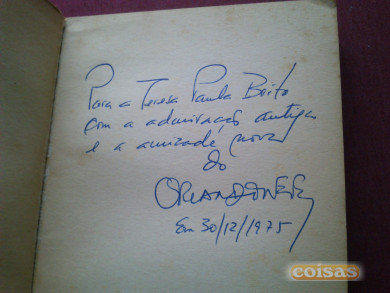 Para a Teresa Paula Brito
com a admiração antiga
e a amizade nova
do
ORLANDO NEVES
Em 30/12/1975
coisas